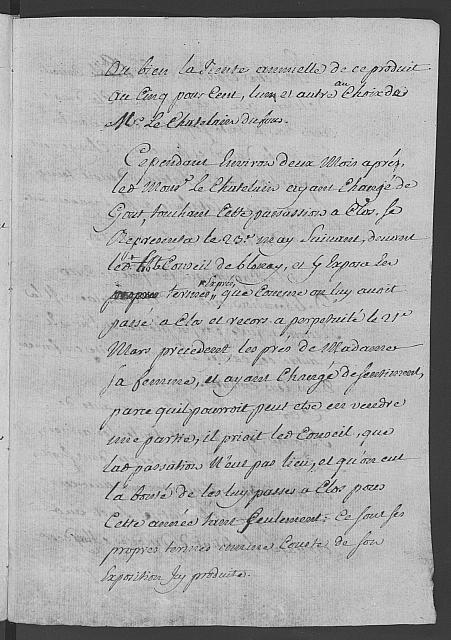 Ou bien la Rente annuelle de ce produit
au Cinq pour Cent, lun et autre au Choix de
Mr. Le Chatelain du four.
Cependant Environ deux Mois après,
led. Monsr. Le Chatelain ayant Changé de
Gout, touchant Cette passation a Clos, se
Representa le 23e. may Suivant, devant
led. Conseil de blonay, et y Exposa Les
propres termes exprès, que Comme on luy avoit
passé a Clos et records a perpetuité le 21e
Mars precedent, les prés de Madame
sa femme, et ayant Changé de sentiment,
parce quil pourroit peut etre en vendre
une partie, il prioit led. Conseil, que
lad. passation N'eut pas lieu, et qu'on eut
la bonté de les luy passer a Clos pour
Cette année tant Seulement: Ce sont ses
propres termes comme Conste de son
Exposition Icy produite.